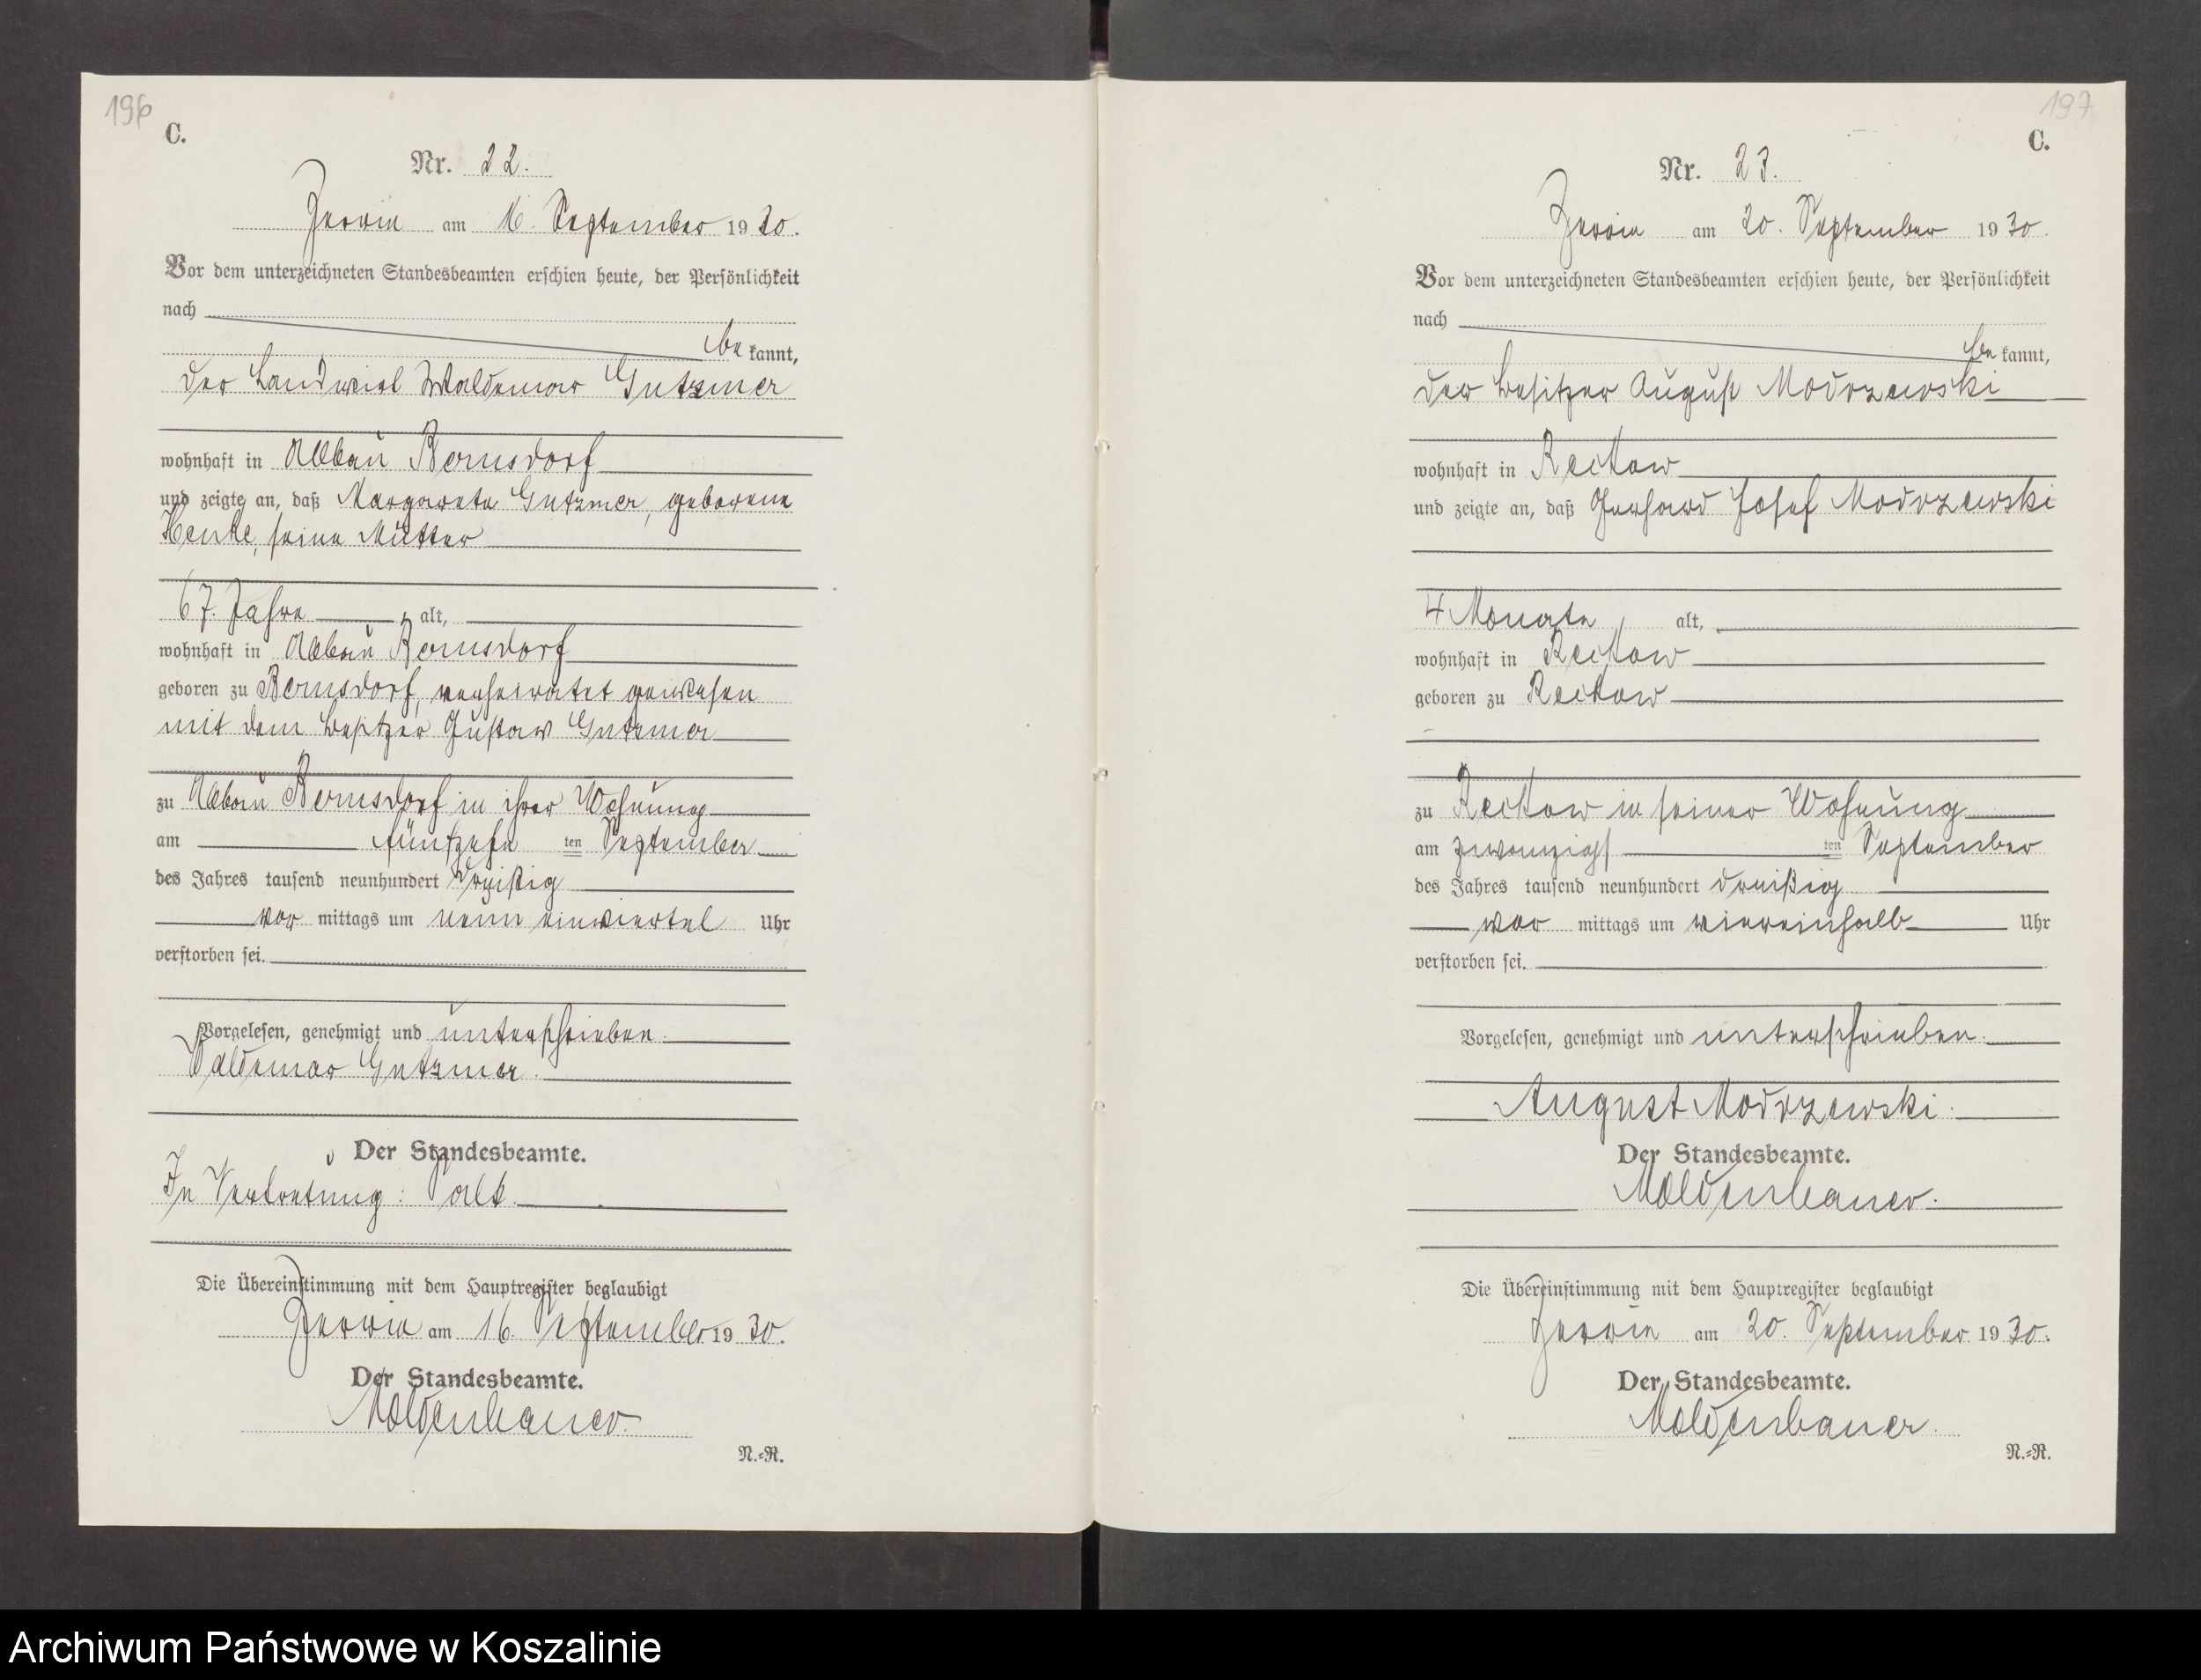 196
C.
Nr. 22.
Jerrin am 16. September 1930.
Vor dem unterzeichneten Standesbeamten erschien heute, der Persönlichkeit
nach
be kannt,
der Landwirt Waldemar Gutzmer
wohnhaft in Abbau Bernsdorf
und zeigte an, daß Margarete Gutzmer, geborene
seine Mutter
67 Jahre, alt,
wohnhaft in Abbau Bernsdorf
geboren zu Bernsdorf, verheiratet gewesen
mit dem Besitzer Gustav Gutzmer
zu Abbau Bernsdorf in ihrer Wohnung
am fünfzehn ten September
des Jahres tausend neunhundert dreißig
vor mittags um neun einviertel Uhr
verstorben sei.
Vorgelesen, genehmigt und unterschrieben.
Waldemar Gutzmer.
Der Standesbeamte.
In Vertretung:
Die Übereinstimmung mit dem Hauptregister beglaubigt
Jerrin am 16. September 1930.
Der Standesbeamte.
Moldenhauer.
N.=R.
197
C.
Nr. 23.
Jerrin am 20. September 1930.
Vor dem unterzeichneten Standesbeamten erschien heute, der Persönlichkeit
nach
be kannt,
der Besitzer August Modrzewski
wohnhaft in Reckow
und zeigte an, daß Gerhard Josef Modrzewski
4 Monate, alt,
wohnhaft in Reckow
geboren zu Reckow
zu Reckow in seiner Wohnung
am zwanzigs ten September
des Jahres tausend neunhundert dreißig
vor mittags um viereinhalb Uhr
verstorben sei.
Vorgelesen, genehmigt und unterschrieben.
August Modrzewski.
Der Standesbeamte.
Moldenhauer.
Die Übereinstimmung mit dem Hauptregister beglaubigt
Jerrin am 20. September 1930.
Der Standesbeamte.
Moldenhauer.
N.=R.
Archiwum Państwowe w Koszalinie